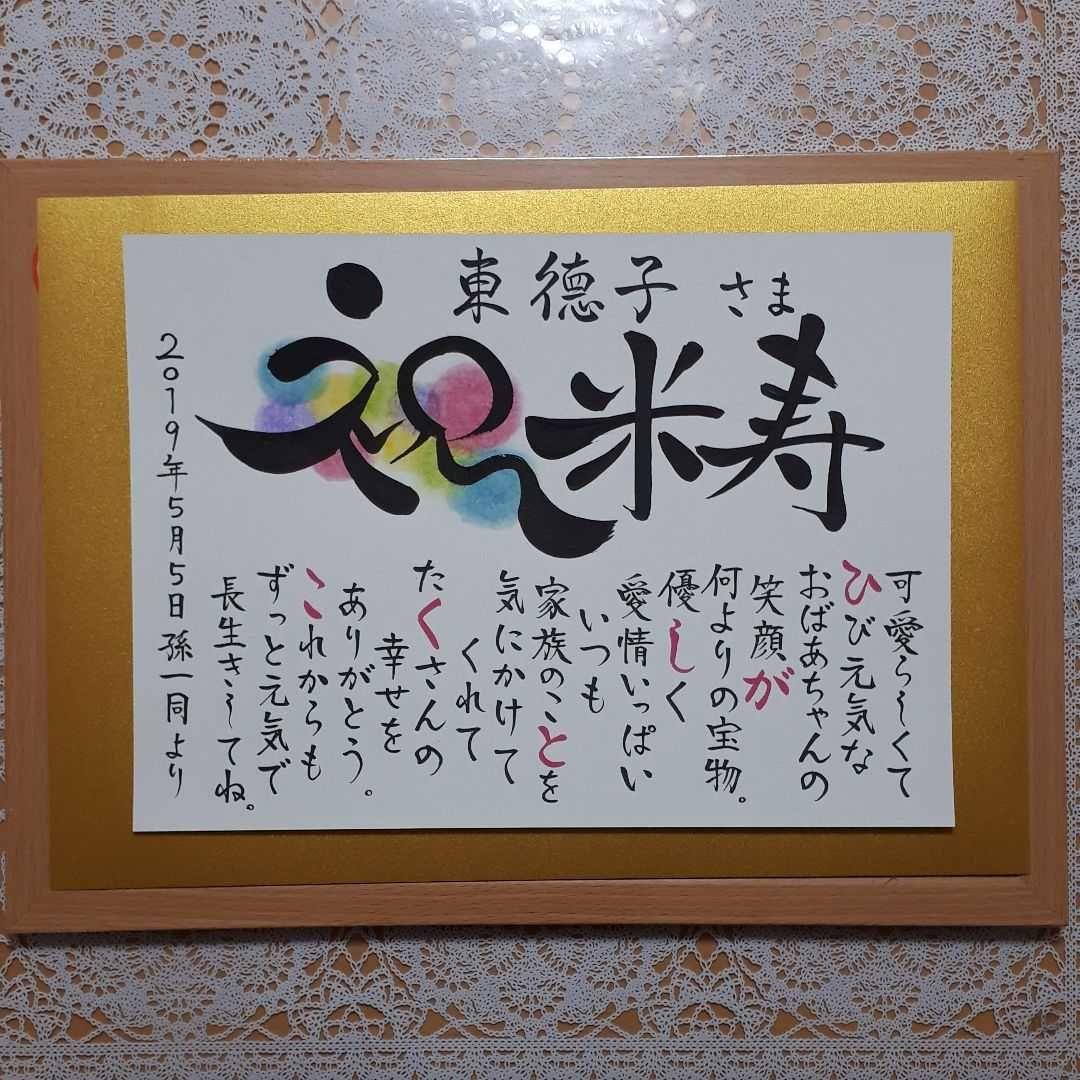 東 徳子 さま
祝米寿
可愛らしくて
ひび元気な
おばあちゃんの
笑顔が
何よりの宝物。
優しく
愛情いっぱい
いつも
家族のことを
気にかけて
くれて
たくさんの
幸せを
ありがとう。
これからも
ずっと元気で
長生きしてね。
2019年5月5日 孫一同より